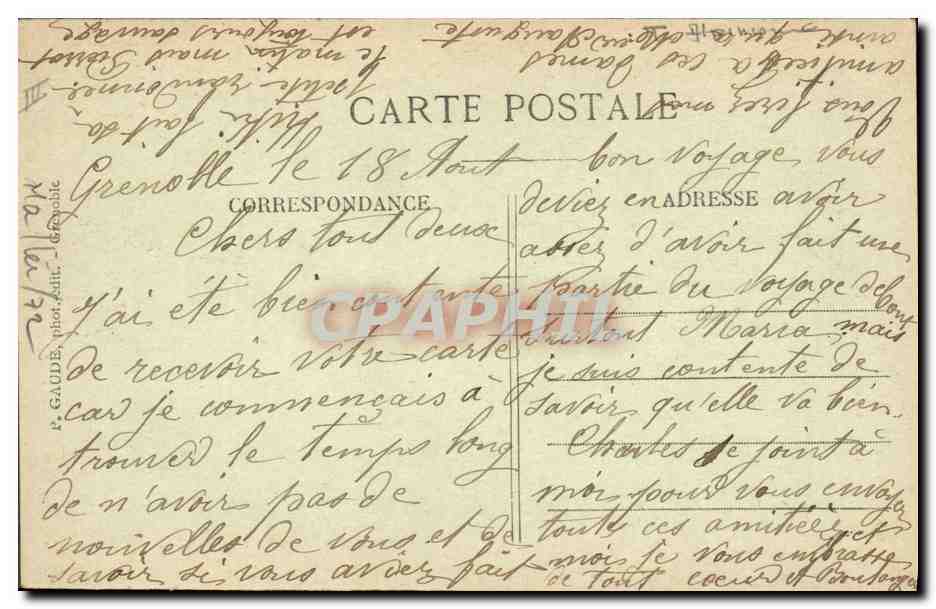 CARTE POSTALE
CORRESPONDANCE
ADRESSE
Grenoble le 18 Aout
Chers tout deux
J'ai été bien contente
de recevoir votre carte
car je commençais à
trouver le temps long
de n'avoir pas de
nouvelles de vous et de
savoir si vous aviez fait
bon voyage vous
deviez en avoir
assez d'avoir fait une
partie du voyage debout
surtout Maria, mais
je suis contente de
savoir qu'elle va bien
Charles se joint à
moi pour vous envoyer
toute ces amitiées et
moi je vous embrasse
de tout coeur A Boulanger
Vous direz mes
amitiées a ces dames
ainsi qu'a Auguste
fait sa
petite
le matin mais
est toujours sauvage
P. GAUDE, phot. édit. - Grenoble
CPAPHIL
III